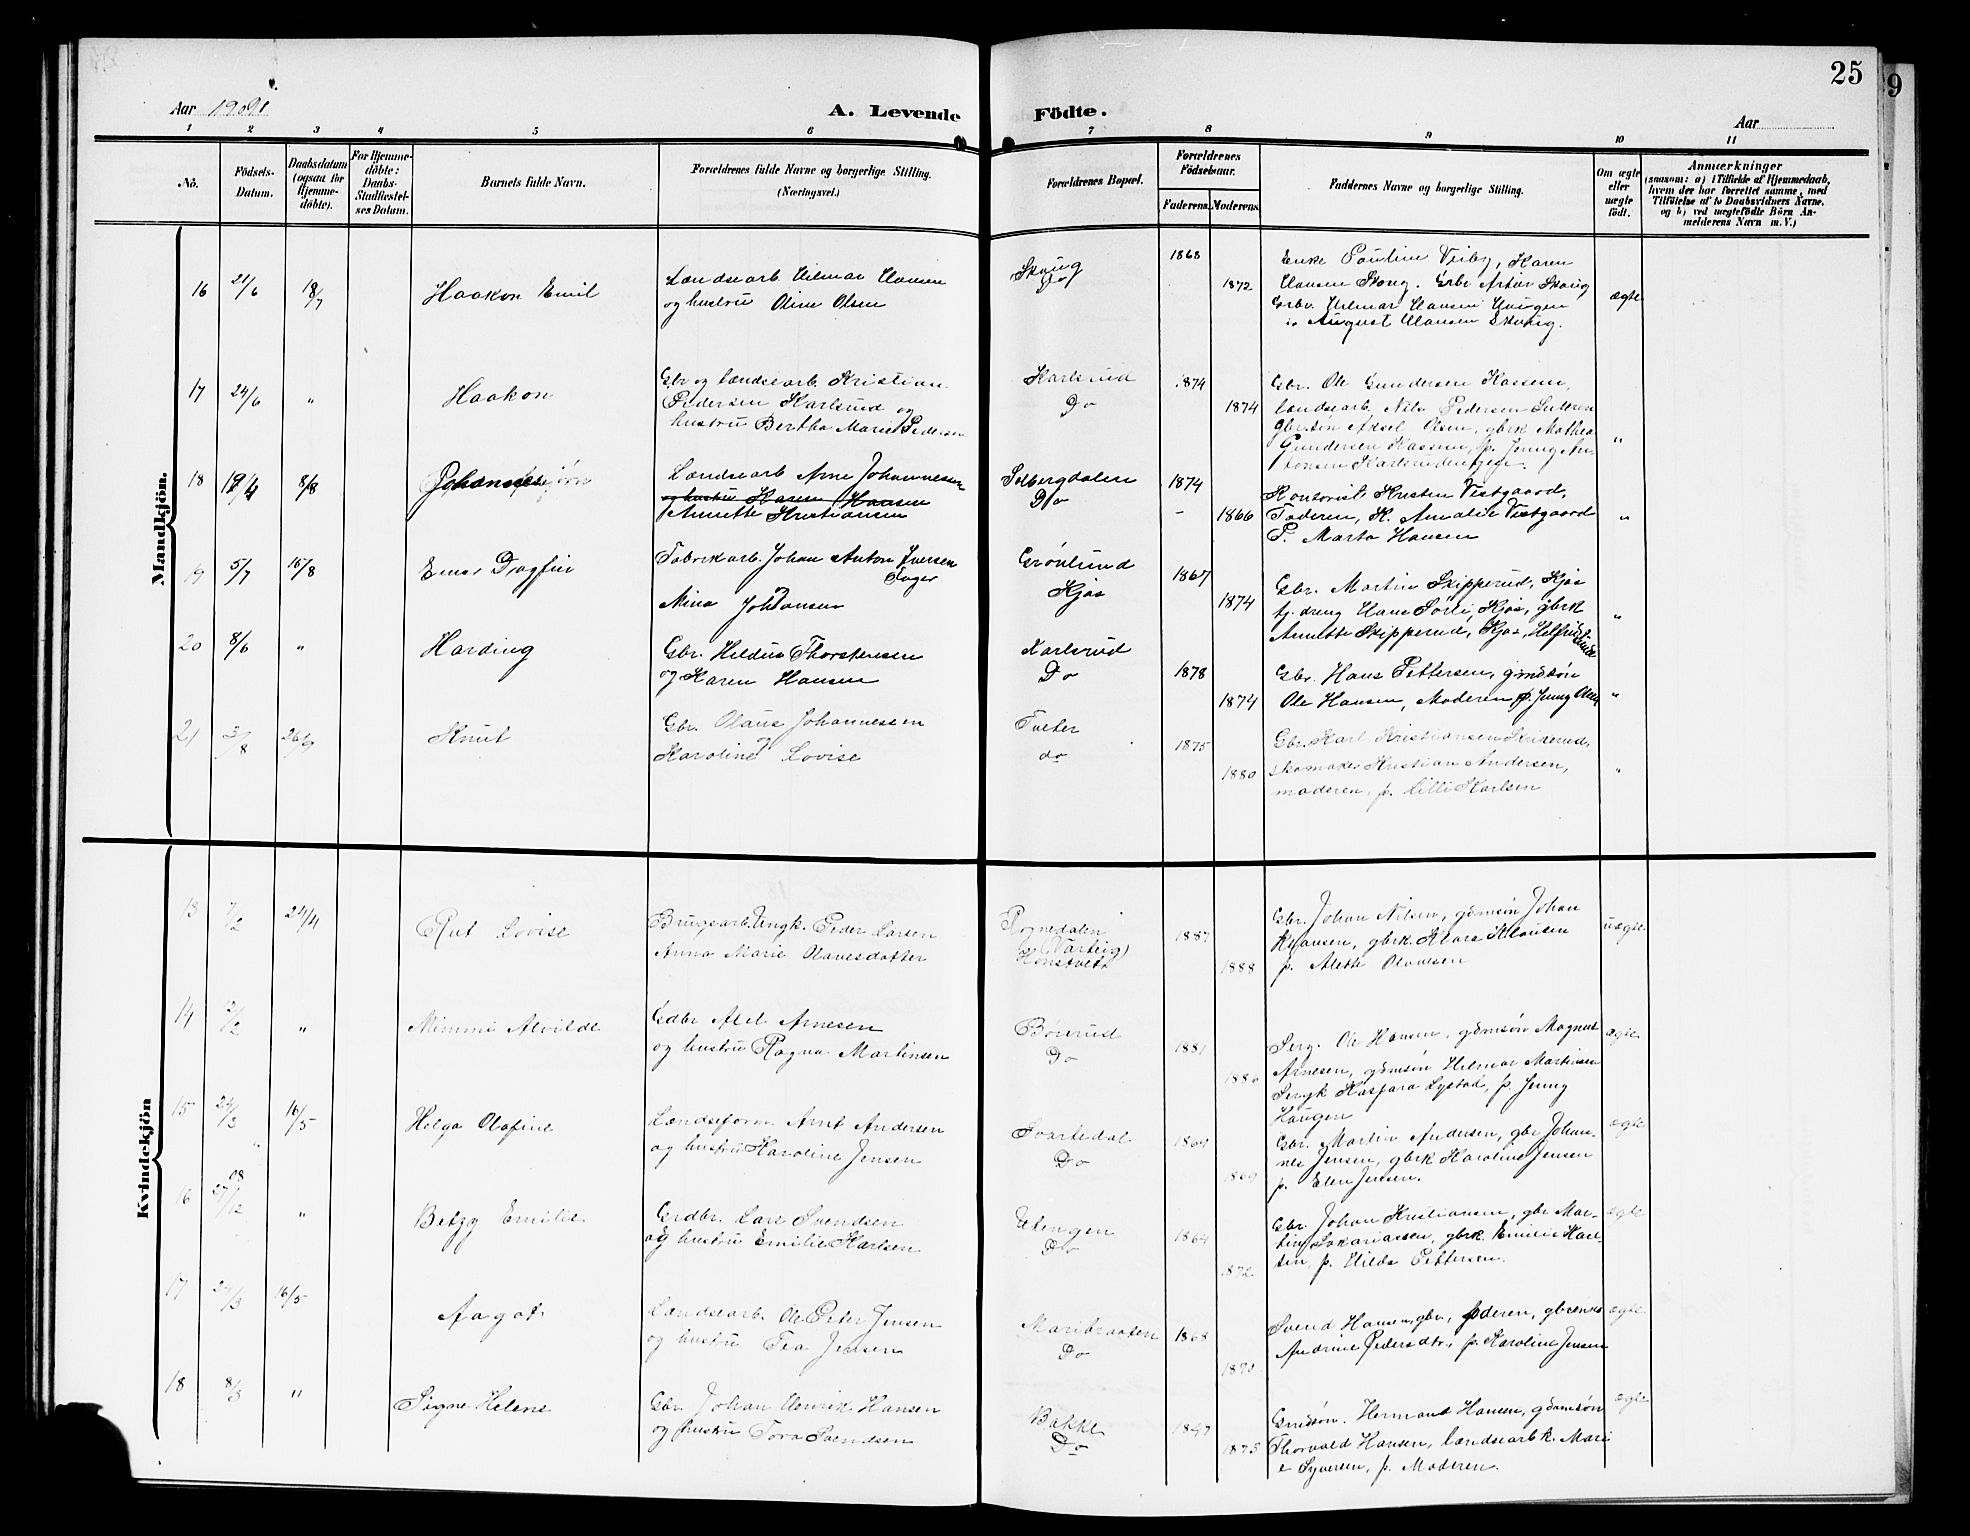 25
9
Aar 1909.
A. Levende Födte.
Aar
1 2 3 4 5 6 7 8 9 10 11
No.
Födsels-Datum.
Daabsdatum (ogsaa for Hjemme-döbte).
For Hjemme-döbte: Daabs-Stadfæstel-ses Datum.
Barnets fulde Navn.
Forældrenes fulde Navne og borgerlige Stilling. (Næringsvei.)
Forældrenes Bopæl.
Forældrenes Födselsaar.
Faderens. Moderens.
Faddernes Navne og borgerlige Stilling.
Om ægte eller uægte födt.
Anmærkninger
(saasom: a) i Tilfælde af Hjemmedaab, hvem der har forrettet samme, med Tilföielse af to Daabsvidners Navne. og b) ved uægtefödte Börn An-melderens Navn m. V.)
Mandkjön.
16 21/6 18/7 Haakon Emil
Lændsearb. Hilmar Hansen
og hustru Oline Olsen
Skoug
do
1868
1872
Enke Pauline Visby, Karen
Hansen Skoug. Grbr Artur Skoug
Grbr. Hilmar Hansen Haugen
io August Hansen Skoug.
ægte
17 24/6 " Haakon
Gbr og lændsearb. Kristian
Pedersen Karlsrud og
hustru Bertha Marie Pedersen
Karlsrud
Do
1874
1874
Gbr. Ole Gundersen Kassem,
lændsearb. Nils Pedersen
Aksel Olsen, gbrk Mathea
Gundersen Kassem, p. Jenny An-
tonsen
"
18 8/8
Lændsearb Arne Johannessen
og hustru Karen Hansen
Annette Kristiansen
Solbergdalen
Do
1874
1866
Kontorist Kristen Vestgaard,
Faderen, K. Amalie Vestgaard
P. Marta Hansen
"
19 5/7 15/8 Einar Dagfin
Fabrikarb. Johan Anton Iversen
Mina Johansen
Grönlund
Kjös
1867
1874
Gbr. Martin Skipperud, Kjös
tj. dreng Hans Kjös, gbrk
Annette Skipperud, Kjös,
"
20 8/6 " Harding
Gbr. Hildus Thorstensen
og Karen Hansen
Karlsrud
Do
1878
1874
Gbr. Hans Pettersen, gmdsön
Ole Hansen, Moderen p. Jenny Olsen
"
21 3/8 26/9 Knut
Gbr. Olaus Johannessen
og
Karoline Lovise
Tveter
do
1875
1880
Gbr. Karl Kristiansen
skomaker Kristian Andersen,
moderen, p. Lilli Karlsen
"
Kvindekjön
13 7/2 24/4 Rut Lovise
Brugsarb. Ungk. Peder Larsen
Anna Marie Olavesdatter
Rognedalen
(Varteig)
1887
1888
Gbr. Johan Nilsen, gdmsön Johan
Klausen, gbrk. Klara Klausen
p. Alette Olavesen
uægte
14 12/2 " Mimmi Alvilde
Gdbr Arnesen
og hustru Ragna Martinsen
Börerud
Do
1881
1886
Serg. Ole Hansen, gdmsön Magnus
Arnesen, gdmsön Hilmar Martinsen
Kaspara p. Jenny
Haugen
ægte
15 24/3 16/5 Helga Olafine
Lændseform. Arnt Andersen
og hustru Karoline Jensen
Svartedal
Do
1864
1869
Gbr. Martin Andersen, gbr Johan-
nes Jensen, gbrk Karoline Jensen
p. Elen Jensen.
ægte
16 27/12 08 " Betzy Emilie
Grdbr. Lars Svendsen
og hustru Emilie Karlsen
Utengen
Do
1864
1872
Gbr. Johan Kristiansen, gbr Mar-
tin Sakariassen, gbrk. Emilie Karl-
sen, p. Hilda Pettersen.
ægte
17 16/5 Aagot
Lændsearb. Ole Peter Jensen
og hustru Tea Jensen
Maribraaten
Do
1868
Svend Hansen, gbr, faderen,
Andrine Pedersdtr., p. Karoline Jensen
ægte
18 8/3 " Signe Helene
Gbr Johan Henrik Hansen
og hustru Tora Svendsen
Bakke
Do
1875
Gmdsön. Hermand Hansen, gdmsön
Thorvald Hansen, lændsearb k. Mari
e Syversen, p. Moderen.
ægte